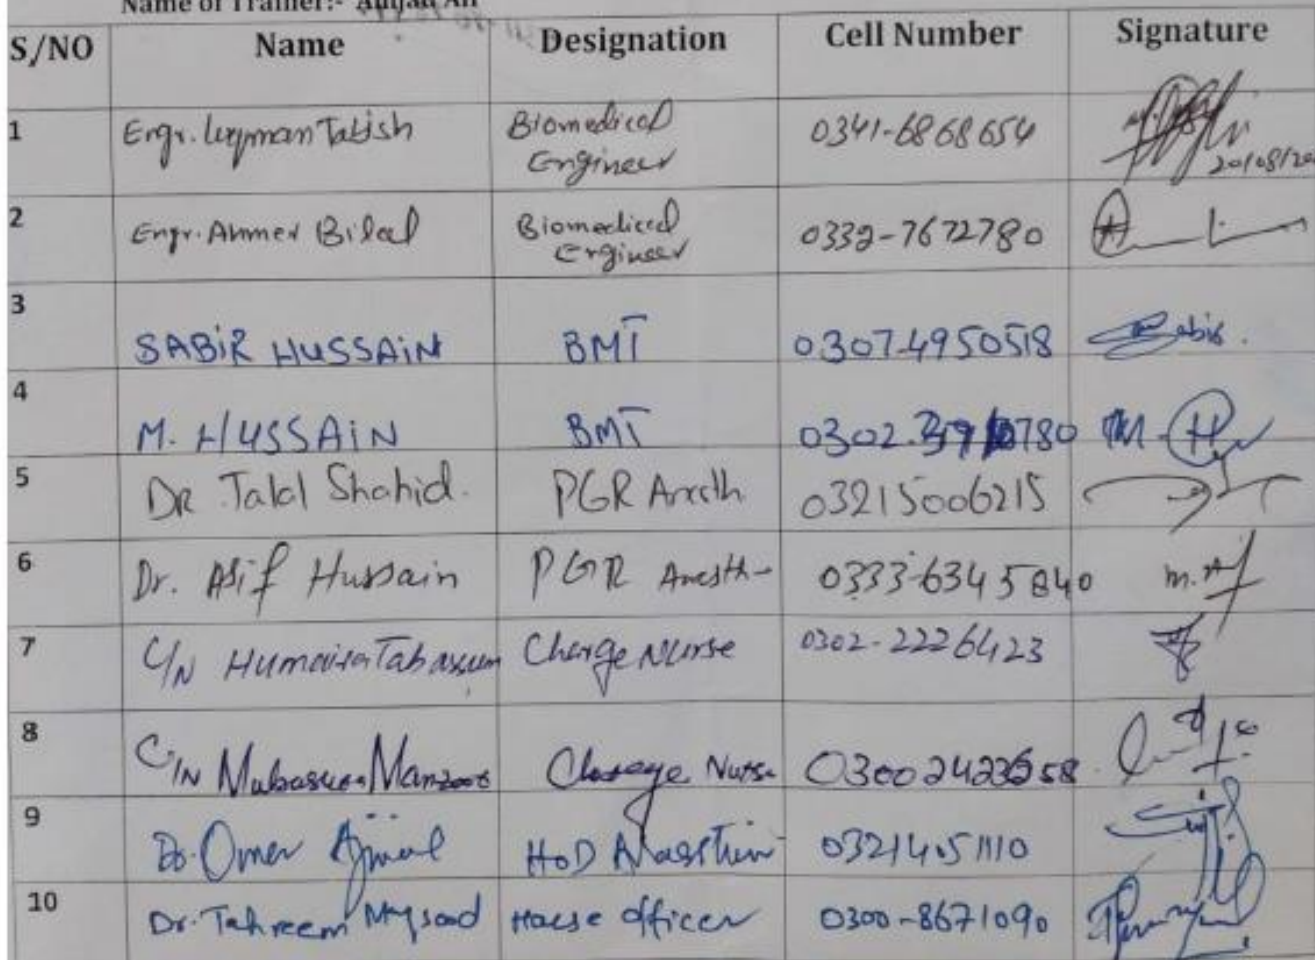 Name of Trainer:- Amjad Ali
S./NO Name Designation Cell Number Signature
1 Engr. Luqman Tabish Biomedical Engineer 0341-6868654
20/08/20
2 Engr. Ahmer Bilal Biomedical Engineer 0332-7672780
3 SABIR HUSSAIN BMT 0307-4950518 Sabir.
4 M. HUSSAIN BMT 0302 780 M.
5 DR Talal Shahid. PGR Anesth 03215006215
6 Dr. Asif Hussain PGR Anesth- 0333-6345840 m. Asif
7 C/N Humaira Tabassum Charge Nurse 0302-2226423
8 C/N Manzoor Charge Nurse
9 Dr. Omer Ajmal HOD 03214051110
10 Dr. Tahreem House officer 0300-8671090